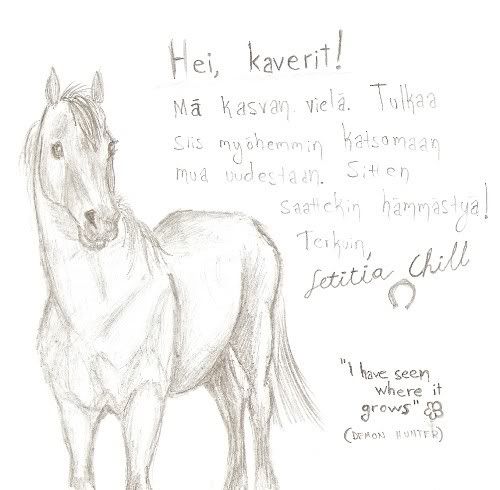 Hei, kaverit!
Mä kasvan vielä. Tulkaa
siis myöhemmin katsomaan
mua uudestaan. Sitten
saattekin hämmästyä!
Terkuin,
Letitia Chill
"I have seen
where it
grows"
(DEMON HUNTER)